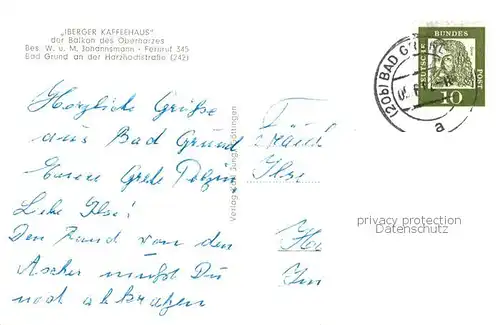 „IBERGER KAFFEEHAUS"
der Balkon des Oberharzes
Bes. W. u. M. Johannsmann - Fernruf 345
Bad Grund an der Harzhochstraße (242)
Herzliche Grüße
aus Bad Grund
Eurer Grete
Liebe Ilse!
Den Rand von den
Ascher mußt Du
noch abkratzen
Verlag
Göttingen
Fräul
Ilse
Ha
Im
(20b) BAD GRUND
a
DEUTSCHE
BUNDES
POST
10
privacy protection
Datenschutz